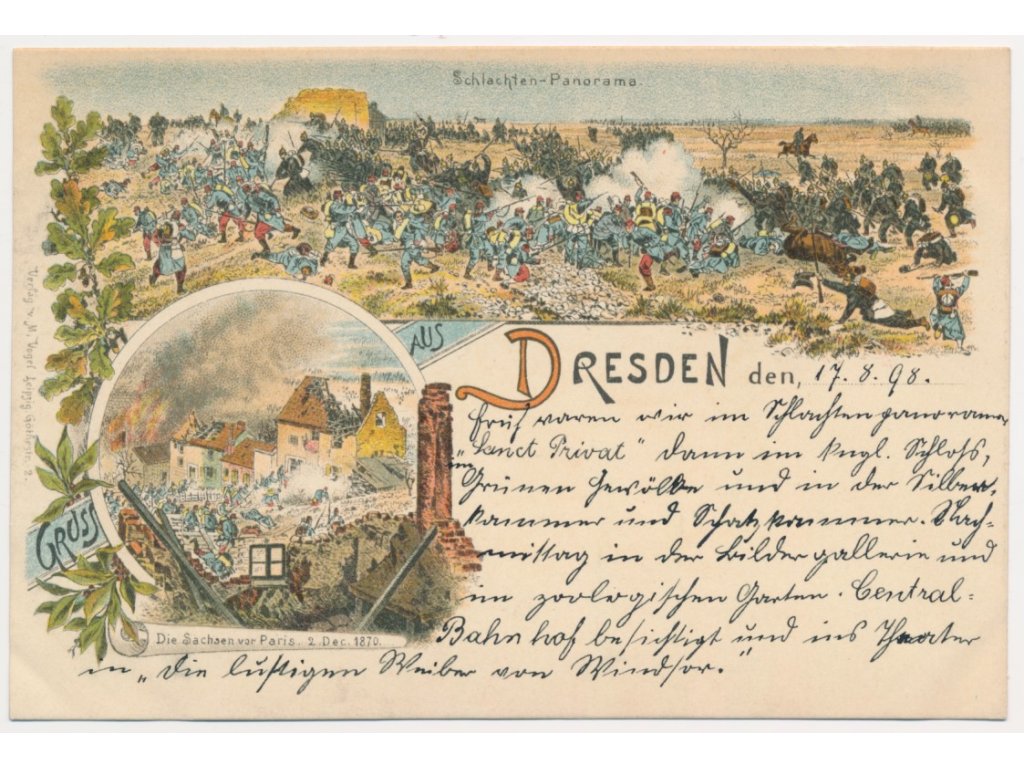 Schlachten-Panorama.
GRUSS AUS
DRESDEN den, 17. 8. 98.
Früh waren wir im Schlachtenpanorama
„Sanct Privat" dann im kngl. Schloss,
im Grünen Gewölbe und in der Silber-
kammer und Schatzkammer. Nach-
mittag in der Bildergallerie und
im zoologischen Garten. Central-
Bahnhof besichtigt und ins Theater
in „Die lustigen Weiber von Windsor."
Die Sachsen vor Paris. 2. Dec. 1870.
Verlag v. M. Vogel Leipzig Gohlis